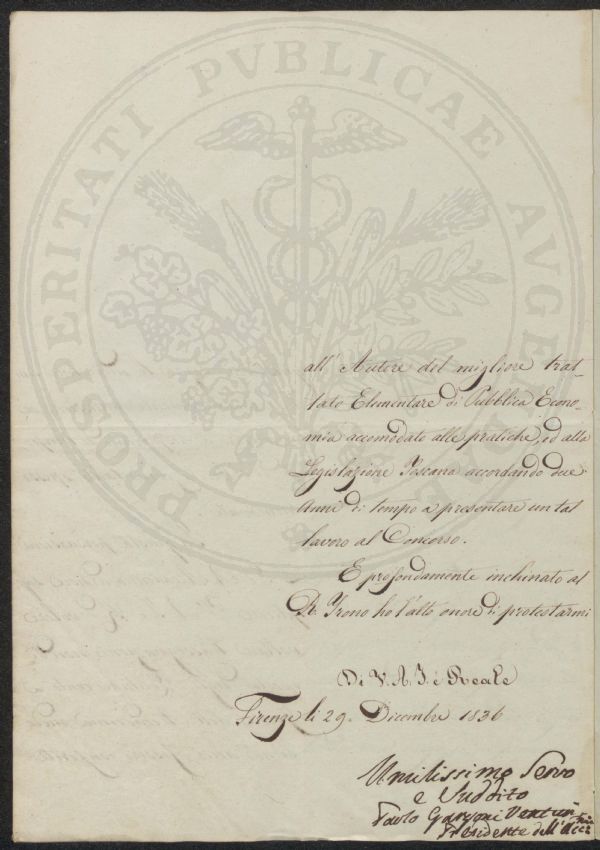 PROSPERITATI PVBLICAE AVGE
all' Autore del migliore trat-
tato Elementare di Pubblica Econo-
mia accomodato alle pratiche, ed alla
Legislazione Toscana accordando due
Anni di tempo a presentare un tal
lavoro al Concorso.
E profondamente inchinato al
R. Trono ho l'alto onore di protestarmi
Di V. A. I. e Reale
Firenze li 29. Dicembre 1836
Umilissimo Servo
e Suddito
Paolo Garzoni Venturi
Presidente dell'Acc